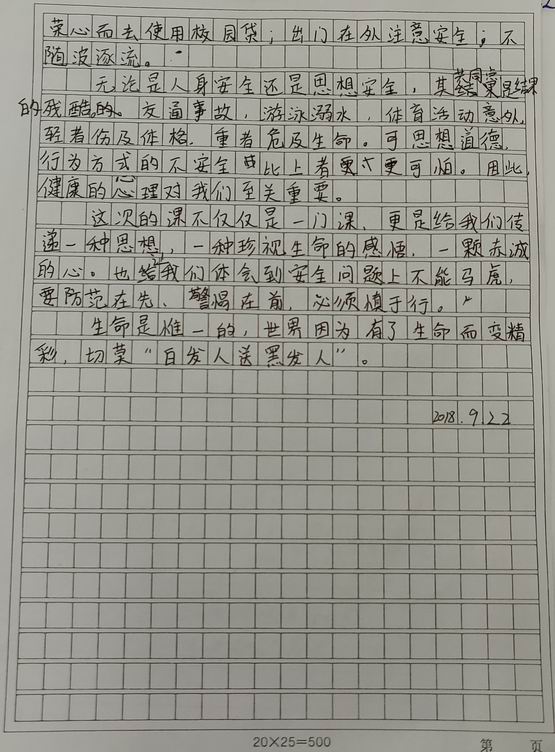 荣心而去使用校园贷；出门在外注意安全；不
随波逐流。
无论是人身安全还是思想安全，其共同点都是结果
的残酷的。交通事故，游泳溺水，体育活动意外，
轻者伤及体格，重者危及生命。可思想道德，
行为方式的不安全比上者更可怕。因此，
健康的心理对我们至关重要。
这次的课不仅仅是一门课，更是给我们传
递一种思想，一种珍视生命的感悟，一颗赤诚
的心。也让我们体会到安全问题上不能马虎，
要防范在先、警惕在前，必须慎于行。"
生命是惟一的，世界因为有了生命而变精
彩，切莫“白发人送黑发人”。
2018.9.22
20×25=500
第 页